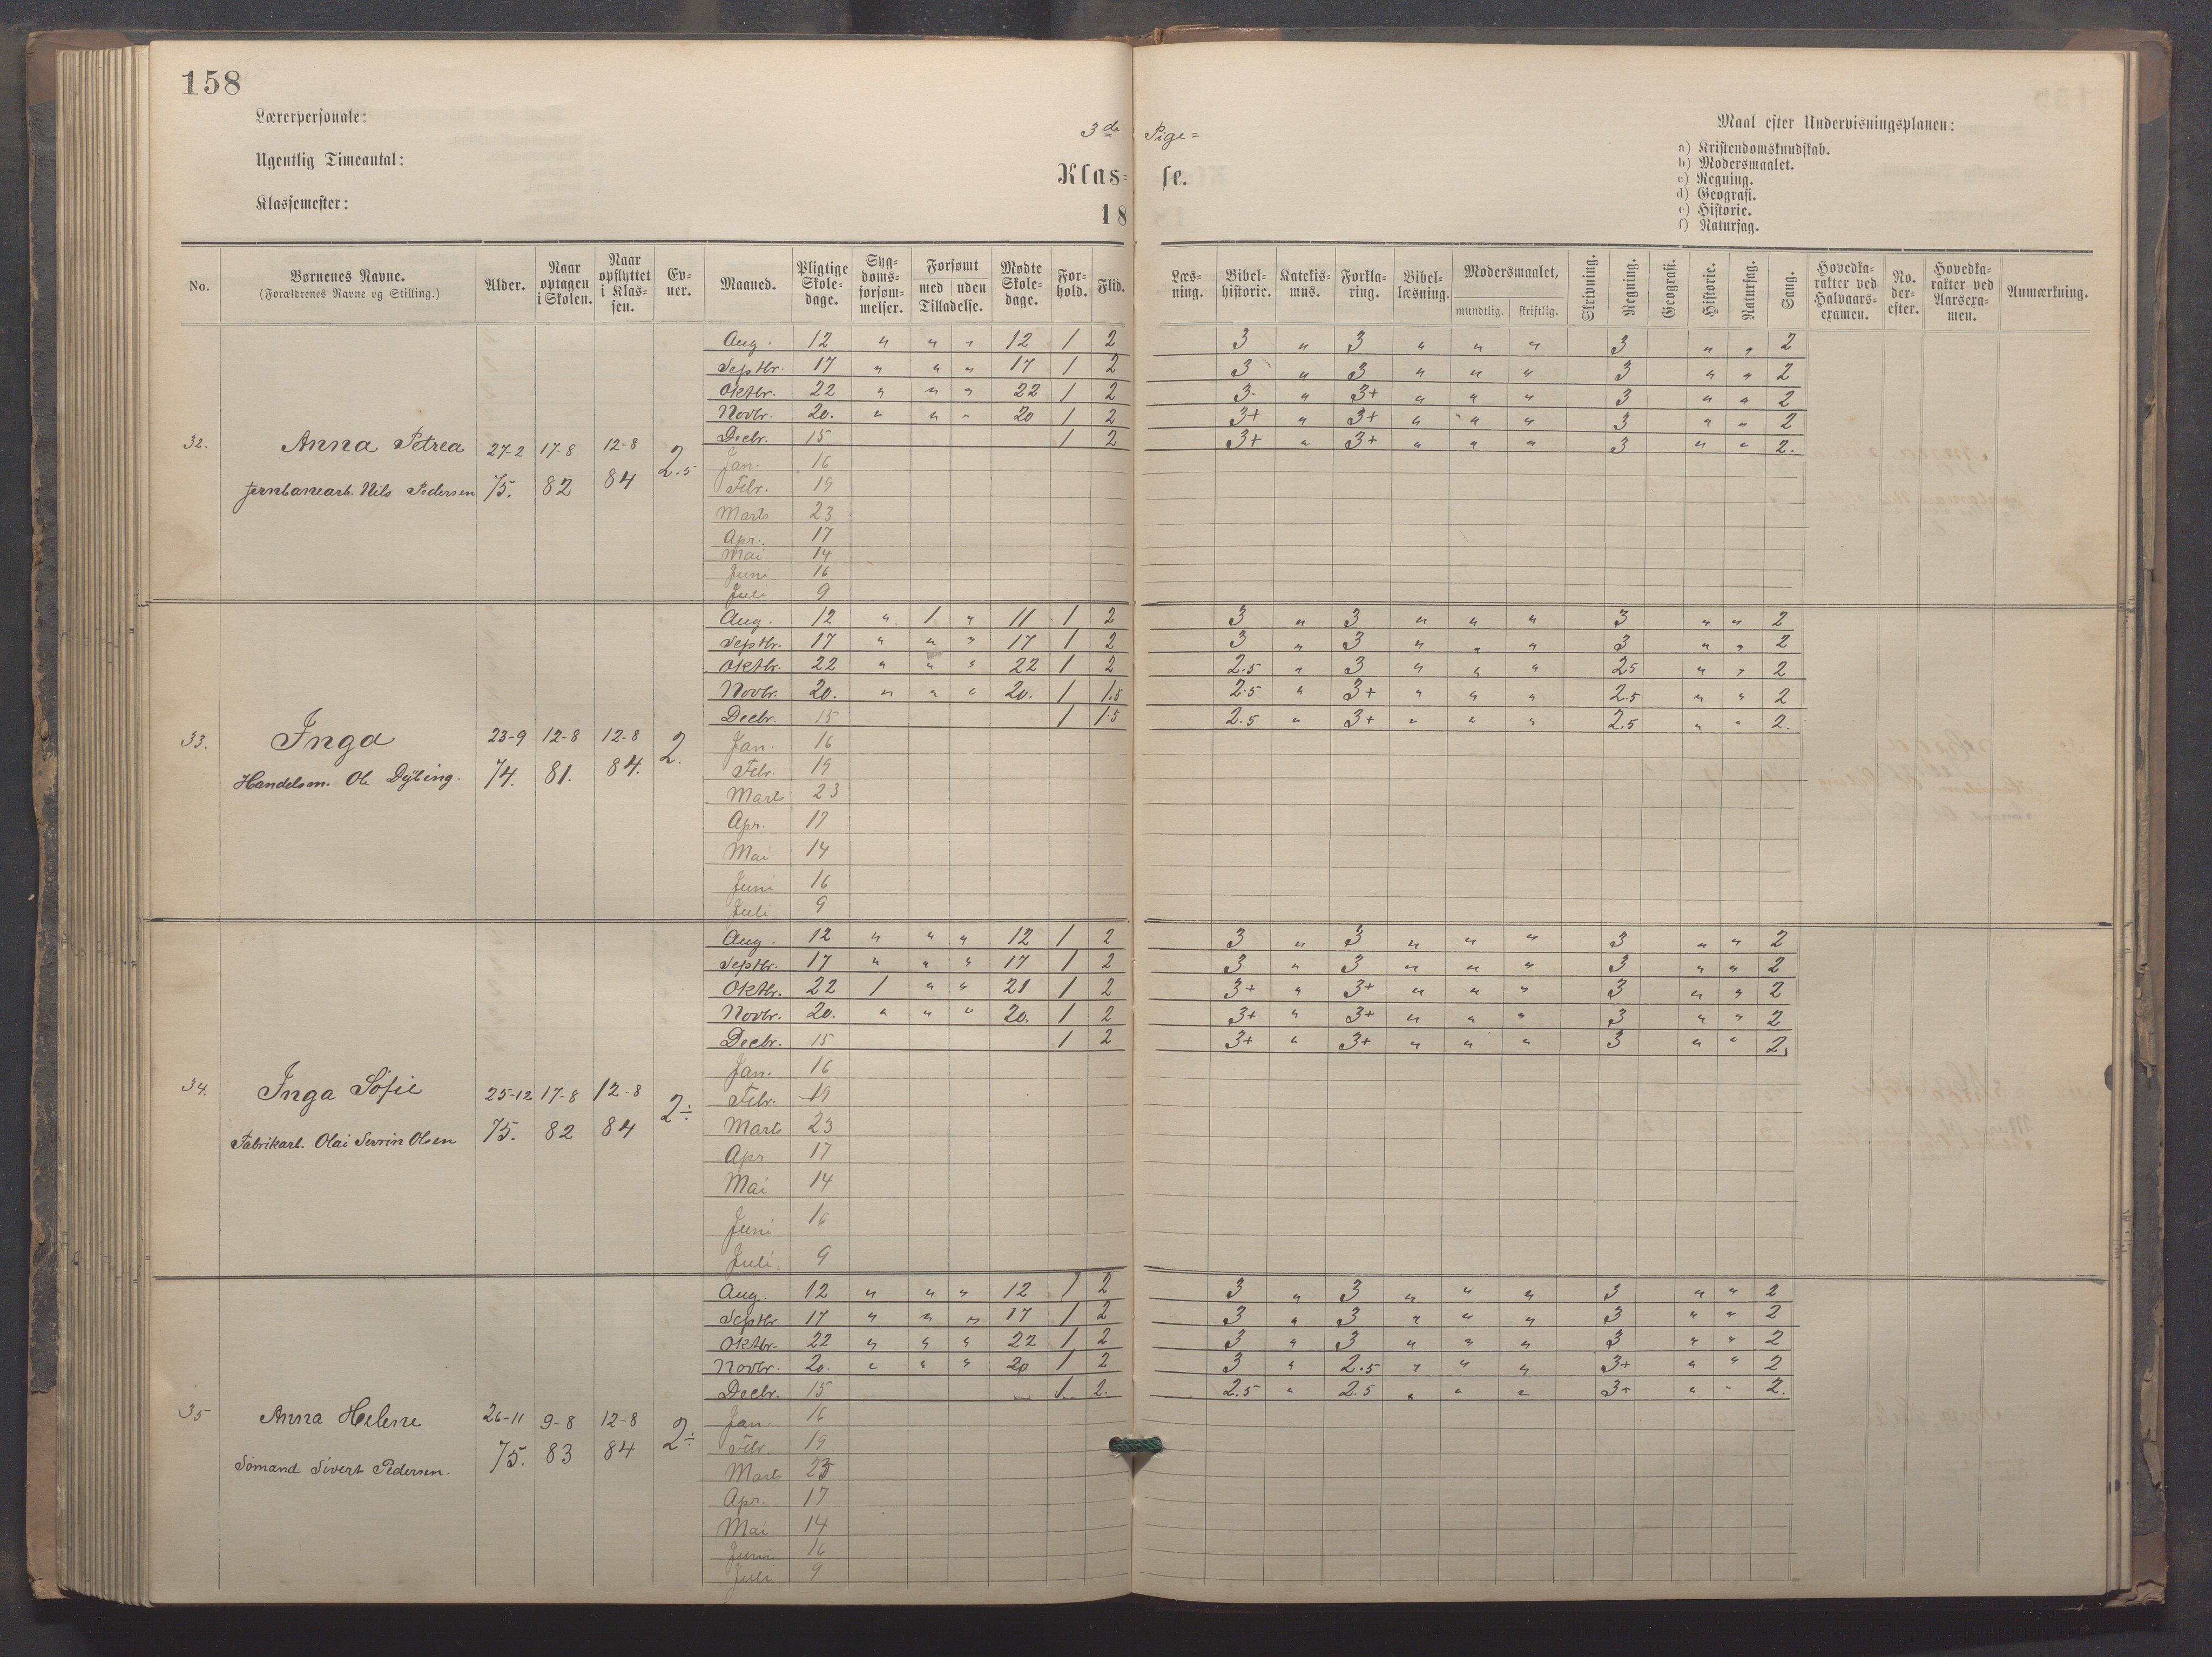 158
Lærerpersonale:
Ugentlig Timeantal:
Klassemester:
3de Pige=
Klas= se.
18
Maal efter Undervisningsplanen:
a) Kristendomskundskab.
b) Modersmaalet.
c) Regning.
d) Geografi.
e) Historie.
f) Naturfag.
No. | Børnenes Navne. (Forældrenes Navne og Stilling.) | Alder. | Naar optagen i Skolen. | Naar opflyttet i Klas= sen. | Ev= ner. | Maaned. | Pligtige Skole= dage. | Syg= doms= forsøm= melser. | Forsømt med uden Tilladelse. | Mødte Skole= dage. | For= hold. | Flid. | Læs= ning. | Bibel= historie. | Katekis= mus. | Forkla= ring. | Bibel= læsning. | Modersmaalet, mundtlig. skriftlig. | Skrivning. | Regning. | Geografi. | Historie. | Naturfag. | Sang. | Hovedka= rakter ved Halvaars= examen. | No. der= efter. | Hovedka= rakter ved Aarsexa= men. | Anmærkning.
32. Anna Petrea 27-2 17-8 12-8 2.5
Jernbanearb. Nils Pedersen 75. 82 84
Aug. 12 " " " 12 1 2 3 " 3 " " " 3 " " 2
Septbr. 17 " " " 17 1 2 3 " 3 " " " 3 " " 2
Oktbr. 22 " " " 22 1 2 3- " 3+ " " " 3 " " 2
Novbr. 20. " " " 20 1 2 3+ " 3+ " " " 3 " " 2
Decbr. 15 1 2 3+ " 3+ " " " 3 " " 2.
Jan. 16
Febr. 19
Marts 23
Apr. 17
Mai 14
Juni 16
Juli 9
33. Inga 23-9 12-8 12-8 2.
Handelsm. Ole Dybing. 74. 81. 84.
Aug. 12 " 1 " 11 1 2 3 " 3 " " " 3 " " 2
Septbr. 17 " " " 17 1 2 3 " 3 " " " 3 " " 2
Oktbr. 22 " " " 22 1 2 2.5 " 3 " " " 25 " " 2
Novbr. 20. " " " 20. 1 1.5 2.5 " 3+ " " " 2.5 " " 2
Decbr. 15 1 1.5 2.5 " 3+ " " " 2.5 " " 2.
Jan. 16
Febr. 19
Marts 23
Apr. 17
Mai 14
Juni 16
Juli 9
34. Inga Sofie 25-12 17-8 12-8 2÷
Fabrikarb. Olai Severin Olsen 75. 82 84
Aug. 12 " " " 12 1 2 3 " 3 " " " 3 " " 2
Septbr. 17 " " " 17 1 2 3 " 3 " " " 3 " " 2
Oktbr. 22 1 " " 21 1 2 3+ " 3+ " " " 3 " " 2
Novbr. 20. " " " 20. 1 2 3+ " 3+ " " " 3 " " 2
Decbr. 15 1 2 3+ " 3+ " " " 3 " " 2
Jan. 16
Febr. 19
Marts 23
Apr 17
Mai 14
Juni 16
Juli 9
35 Anna Helene 26-11 9-8 12-8 2÷
Sømand Sivert Pedersen. 75. 83 84
Aug. 12 " " " 12 1 2 3 " 3 " " " 3 " " 2
Septbr 17 " " " 17 1 2 3 " 3 " " " 3 " " 2
Oktbr. 22 " " " 22 1 2 3 " 3 " " " 3 " " 2
Novbr. 20. " " " 20 1 2 3 " 2.5 " " " 3+ " " 2
Decbr. 15 1 2. 2.5 " 2.5 " " " 3+ " " 2.
Jan. 16
Febr. 19
Marts 23
Apr. 17
Mai 14
Juni 16
Juli 9